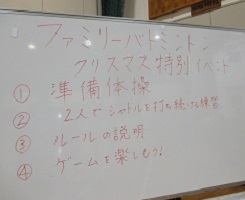 ファミリーバドミントン
クリスマス特別イベント
① 準備体操
② 2人でシャトルを打ち続ける練習
③ ルールの説明
④ ゲームを楽しもう!